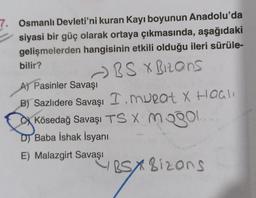 7. Osmanlı Devleti'ni kuran Kayı boyunun Anadolu'da
siyasi bir güç olarak ortaya çıkmasında, aşağıdaki
gelişmelerden hangisinin etkili olduğu ileri sürüle-
bilir?
→ BS X Bizans
A) Pasinler Savaşı
B) Sazlıdere Savaşı I. murat X Haçlı
C) Kösedağ Savaşı TS X moğol
D) Baba İshak İsyanı
E) Malazgirt Savaşı
BS X Bizans